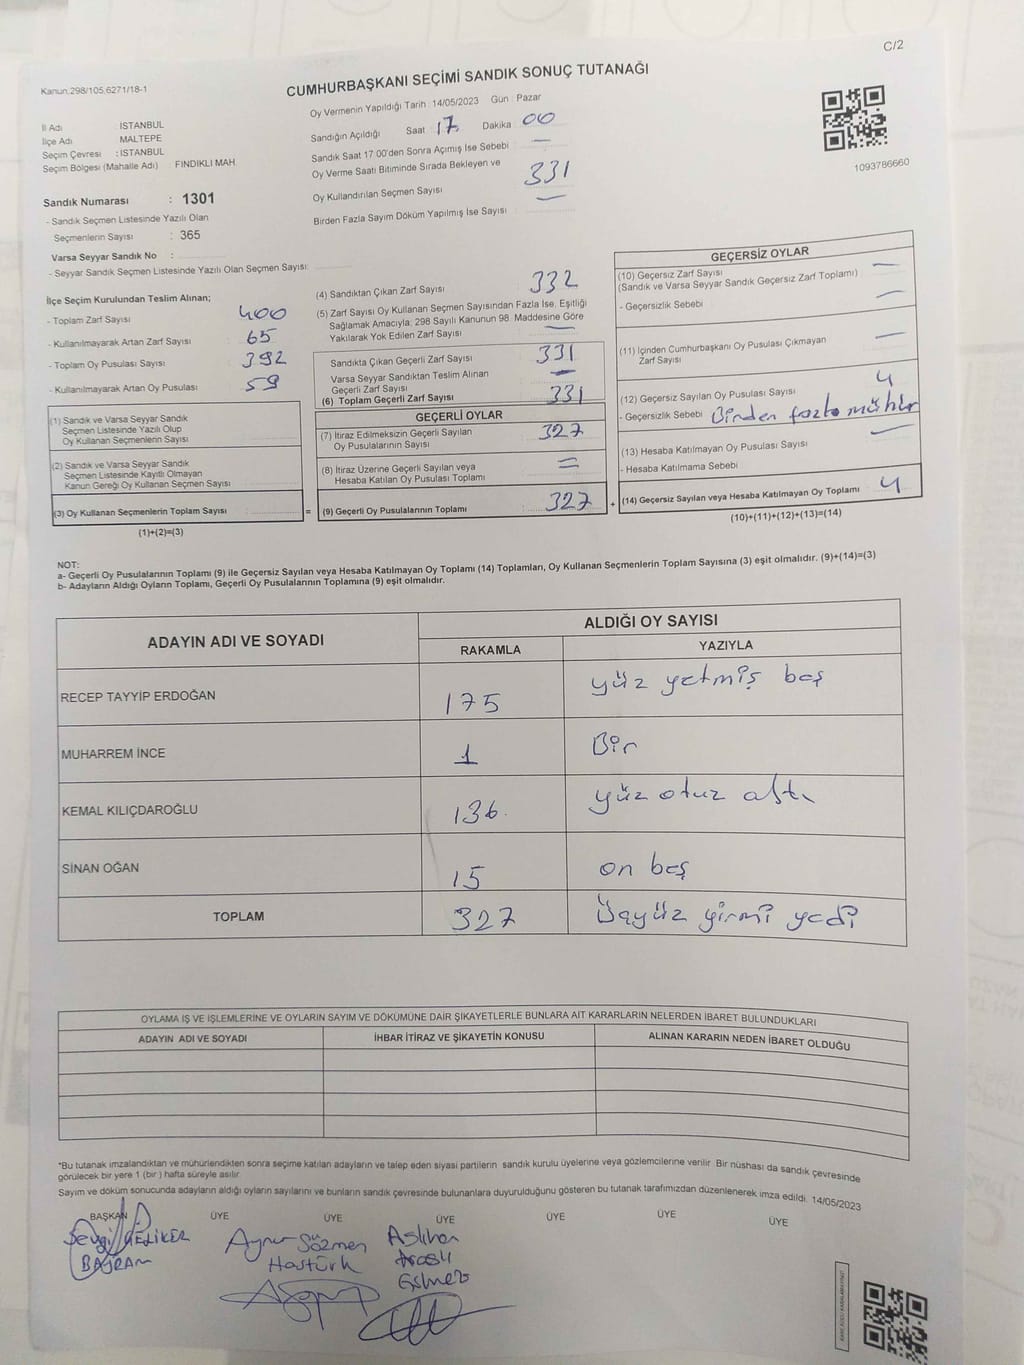 C/2
Kanun.298/105,6271/18-1
CUMHURBAŞKANI SEÇİMİ SANDIK SONUÇ TUTANAĞI
Oy Vermenin Yapıldığı Tarih : 14/05/2023 Gün : Pazar
İl Adı İSTANBUL
İlçe Adı MALTEPE
Seçim Çevresi : İSTANBUL
Seçim Bölgesi (Mahalle Adı) FINDIKLI MAH.
Sandığın Açıldığı Saat 17 Dakika 00
Sandık Saat 17:00'den Sonra Açımış İse Sebebi : —
Oy Verme Saati Bitiminde Sırada Bekleyen ve
Oy Kullandırılan Seçmen Sayısı 331
Birden Fazla Sayım Döküm Yapılmış İse Sayısı : —
1093786660
Sandık Numarası : 1301
- Sandık Seçmen Listesinde Yazılı Olan
Seçmenlerin Sayısı : 365
Varsa Seyyar Sandık No :
- Seyyar Sandık Seçmen Listesinde Yazılı Olan Seçmen Sayısı:
İlçe Seçim Kurulundan Teslim Alınan;
- Toplam Zarf Sayısı 400
- Kullanılmayarak Artan Zarf Sayısı : 65
- Toplam Oy Pusulası Sayısı : 392
- Kullanılmayarak Artan Oy Pusulası : 59
(1) Sandık ve Varsa Seyyar Sandık
Seçmen Listesinde Yazılı Olup
Oy Kullanan Seçmenlerin Sayısı
(2) Sandık ve Varsa Seyyar Sandık
Seçmen Listesinde Kayıtlı Olmayan
Kanun Gereği Oy Kullanan Seçmen Sayısı
(3) Oy Kullanan Seçmenlerin Toplam Sayısı =
(1)+(2)=(3)
(4) Sandıktan Çıkan Zarf Sayısı : 332
(5) Zarf Sayısı Oy Kullanan Seçmen Sayısından Fazla İse, Eşitliği
Sağlamak Amacıyla, 298 Sayılı Kanunun 98. Maddesine Göre
Yakılarak Yok Edilen Zarf Sayısı —
Sandıkta Çıkan Geçerli Zarf Sayısı 331
Varsa Seyyar Sandıktan Teslim Alınan
Geçerli Zarf Sayısı —
(6) Toplam Geçerli Zarf Sayısı : 331
GEÇERLİ OYLAR
(7) İtiraz Edilmeksizin Geçerli Sayılan
Oy Pusulalarının Sayısı 327
(8) İtiraz Üzerine Geçerli Sayılan veya
Hesaba Katılan Oy Pusulası Toplamı =
(9) Geçerli Oy Pusulalarının Toplamı : 327 +
GEÇERSİZ OYLAR
(10) Geçersiz Zarf Sayısı —
(Sandık ve Varsa Seyyar Sandık Geçersiz Zarf Toplamı)
- Geçersizlik Sebebi —
(11) İçinden Cumhurbaşkanı Oy Pusulası Çıkmayan
Zarf Sayısı —
(12) Geçersiz Sayılan Oy Pusulası Sayısı 4
- Geçersizlik Sebebi Birden fazla mühür
(13) Hesaba Katılmayan Oy Pusulası Sayısı —
- Hesaba Katılmama Sebebi
(14) Geçersiz Sayılan veya Hesaba Katılmayan Oy Toplamı 4
(10)+(11)+(12)+(13)=(14)
NOT:
a- Geçerli Oy Pusulalarının Toplamı (9) ile Geçersiz Sayılan veya Hesaba Katılmayan Oy Toplamı (14) Toplamları, Oy Kullanan Seçmenlerin Toplam Sayısına (3) eşit olmalıdır. (9)+(14)=(3)
b- Adayların Aldığı Oyların Toplamı, Geçerli Oy Pusulalarının Toplamına (9) eşit olmalıdır.
ADAYIN ADI VE SOYADI ALDIĞI OY SAYISI
RAKAMLA YAZIYLA
RECEP TAYYİP ERDOĞAN 175 yüz yetmiş beş
MUHARREM İNCE 1 Bir
KEMAL KILIÇDAROĞLU 136 yüz otuz altı
SİNAN OĞAN 15 on beş
TOPLAM 327 Üçyüz yirmi yedi
OYLAMA İŞ VE İŞLEMLERİNE VE OYLARIN SAYIM VE DÖKÜMÜNE DAİR ŞİKAYETLERLE BUNLARA AİT KARARLARIN NELERDEN İBARET BULUNDUKLARI
ADAYIN ADI VE SOYADI İHBAR İTİRAZ VE ŞİKAYETİN KONUSU ALINAN KARARIN NEDEN İBARET OLDUĞU
*Bu tutanak imzalandıktan ve mühürlendikten sonra seçime katılan adayların ve talep eden siyasi partilerin sandık kurulu üyelerine veya gözlemcilerine verilir. Bir nüshası da sandık çevresinde
görülecek bir yere 1 (bir) hafta süreyle asılır.
Sayım ve döküm sonucunda adayların aldığı oyların sayılarını ve bunların sandık çevresinde bulunanlara duyurulduğunu gösteren bu tutanak tarafımızdan düzenlenerek imza edildi. 14/05/2023
BAŞKAN ÜYE ÜYE ÜYE ÜYE ÜYE ÜYE
Sevgi ÇELİKER
BAYRAM
Aynur Sözmen
Hastürk
Aslıhan